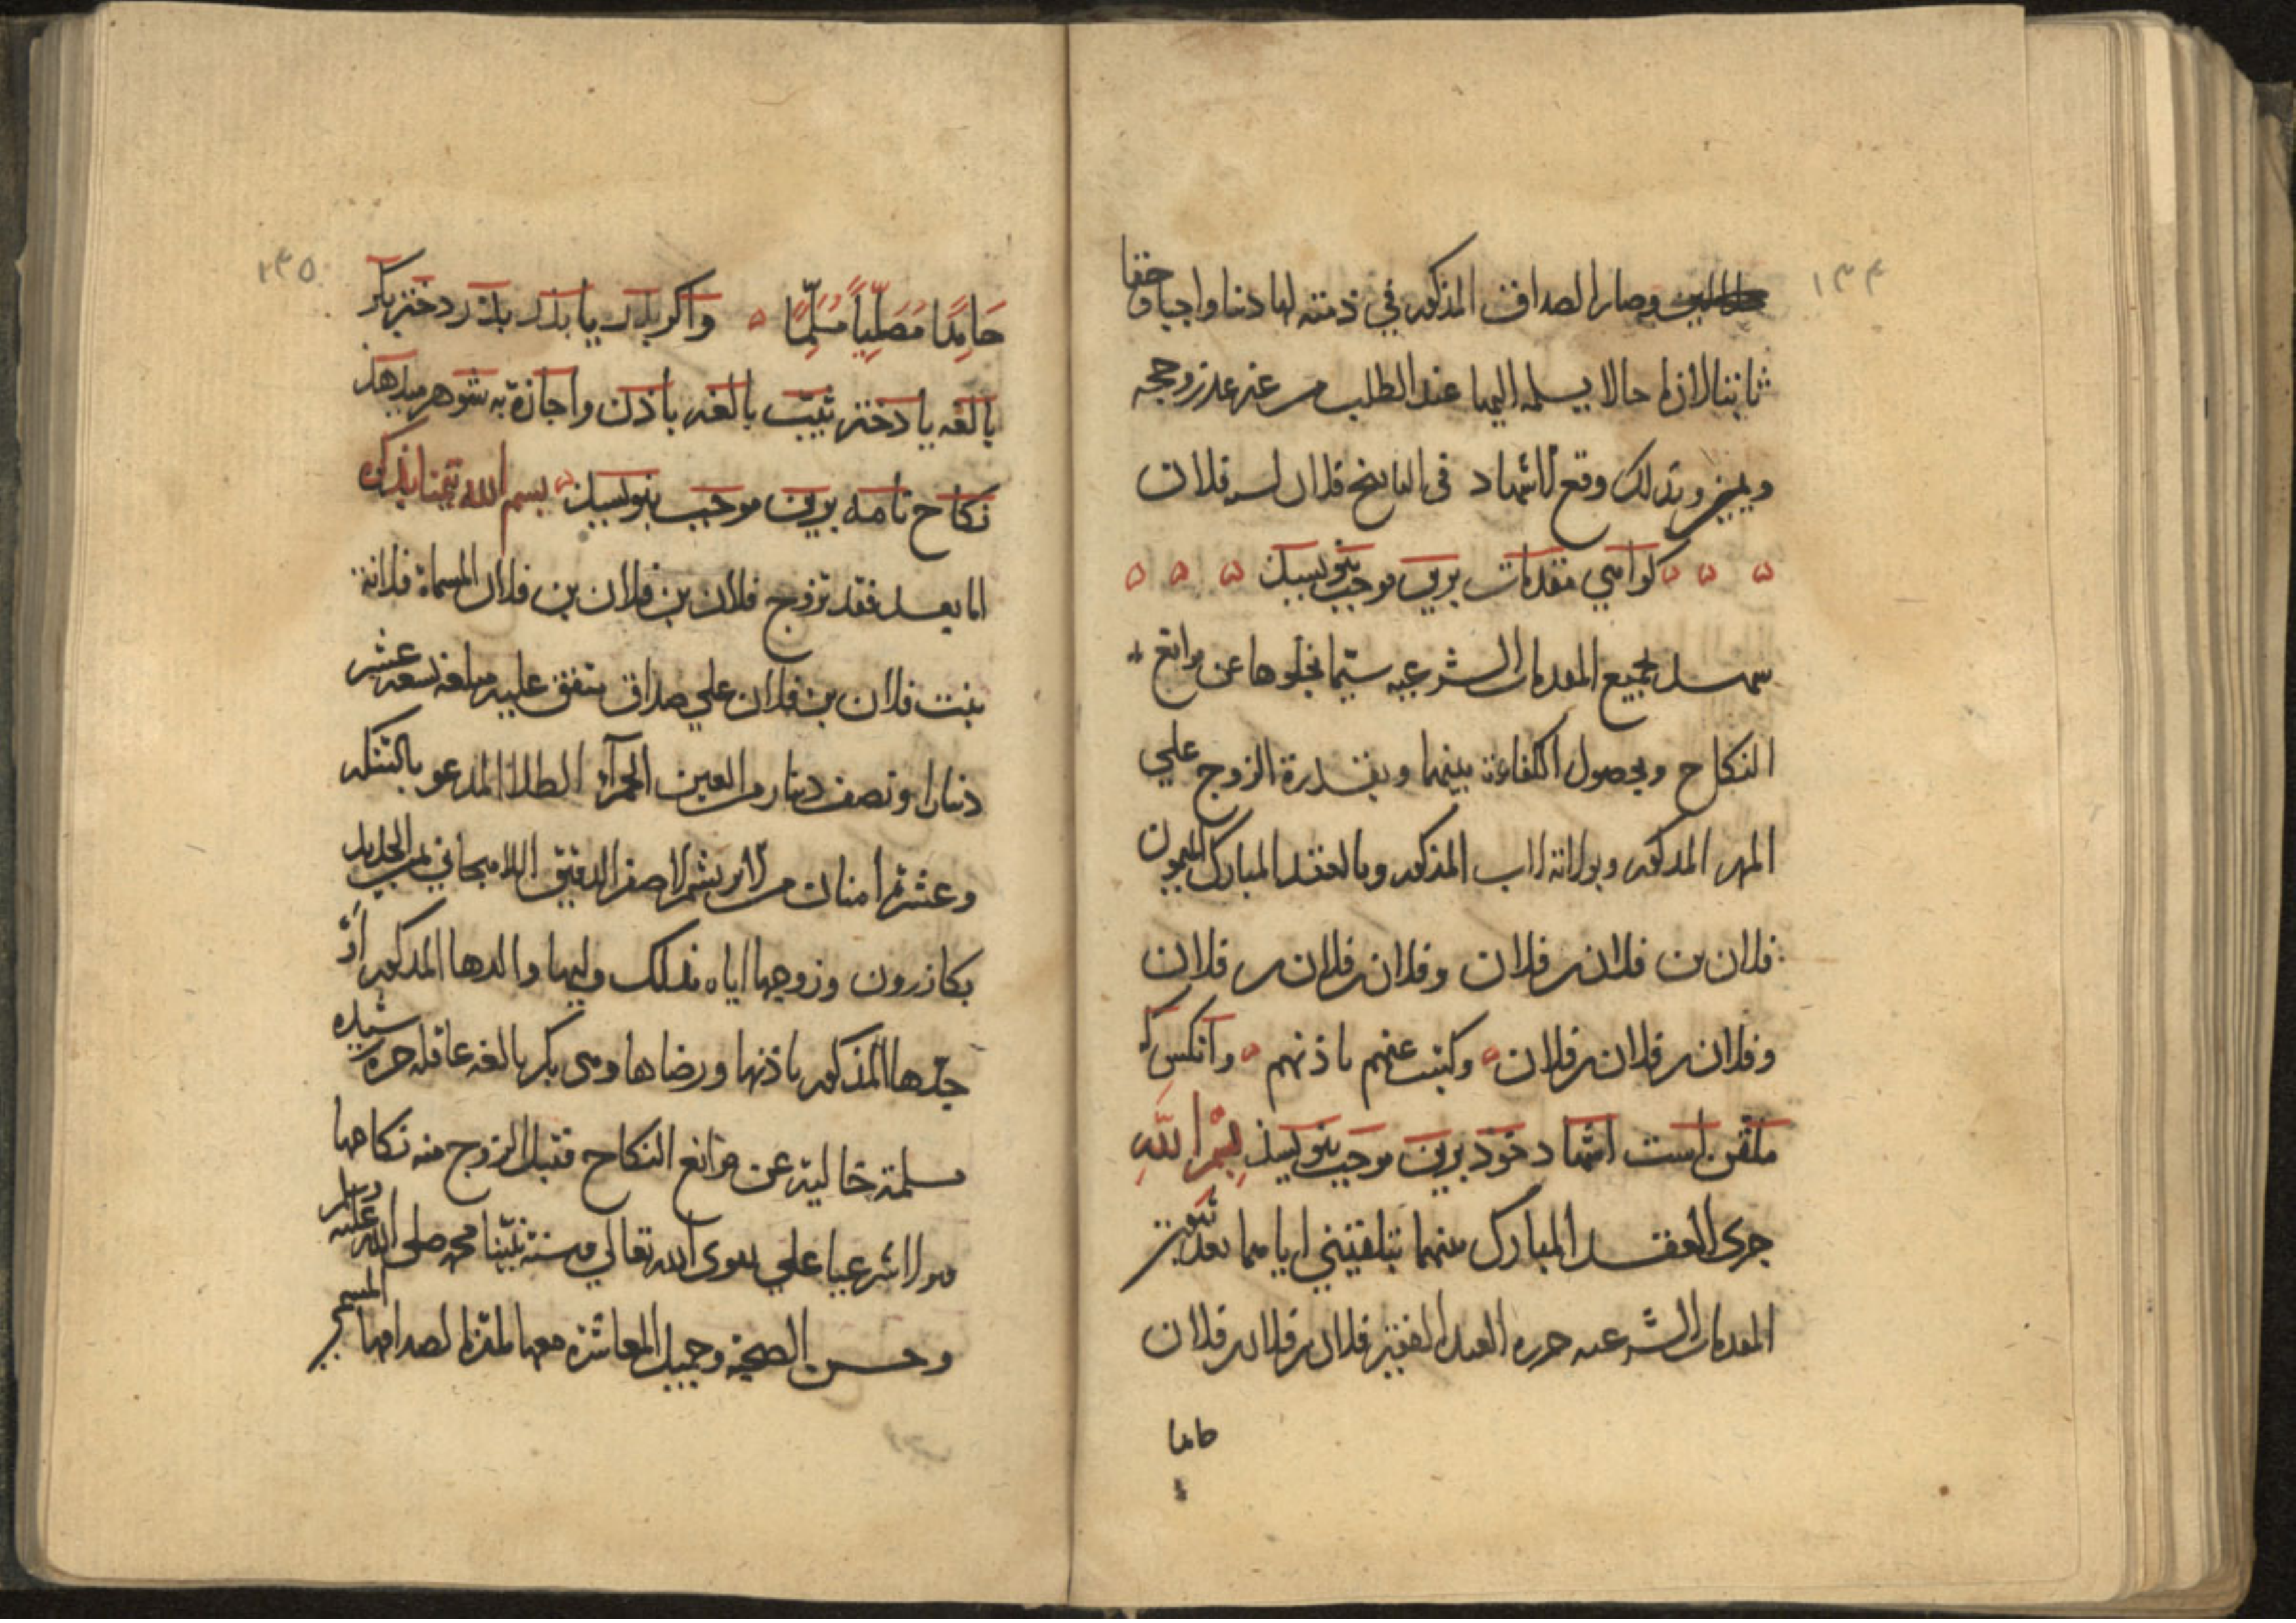 ١٣٤
وصار الصداق المذكور في ذمته لها دينا واجبا وحقا
ثابتا لازما حالا يسلمه اليها عند الطلب من غير عذر وحجة
وبذلك وقع الاشهاد في التاريخ فلان بن فلان
كواهي مقدمات برين موجب بنويسند
شهد بجميع المقدمات الشرعيه سيما بخلوها عن موانع
النكاح وبحصول الكفاءة بينهما وبقدرة الزوج علي
المهر المذكور وبولاية الاب المذكور وبالعقد المبارك الميمون
فلان بن فلان بن فلان وفلان بن فلان بن فلان
وفلان بن فلان بن فلان وكتبت عنهم باذنهم وآنكس كه
ملقن است اشهاد خود برين موجب بنويسد بسم الله
جرى العقد المبارك بينهما بتلقيني اياهما بعد
المقدمات الشرعيه حرره العبد الفقير فلان بن فلان بن فلان
حامدا
١٣٥
حَامِدًا مُصَلِّيًا مُسَلِّمًا واكر پدر يا پدر پدر دختر بكر
بالغه يا دختر ثيب بالغه باذن واجازة به شوهر ميدهد
نكاح نامه برين موجب بنويسند بسم الله تيمنا بذكره
اما بعد فقد تزوج فلان بن فلان بن فلان المسماة فلانة
بنت فلان بن فلان علي صداق متفق عليه مبلغه تسعة عشر
دينارا ونصف دينار من العين الحمرآء الطلا المدعو بالتنكه
وعشرة امنان من الابريشم الاصفر الدقيق اللاهجاني بمن الجديد
بكازرون وزوجها اياه بذلك وليها والدها المذكور أو
جدها المذكور باذنها ورضاها وهي بكر بالغه عاقله حره رشيده
مسلمة خالية عن موانع النكاح فقبل الزوج منه نكاحها
قبولا شرعيا علي تقوى الله تعالي وسنة نبينا محمد صلى الله عليه وسلم
وحسن الصحبة وجميل المعاشرة معها ملتزما لصداقها المسمى